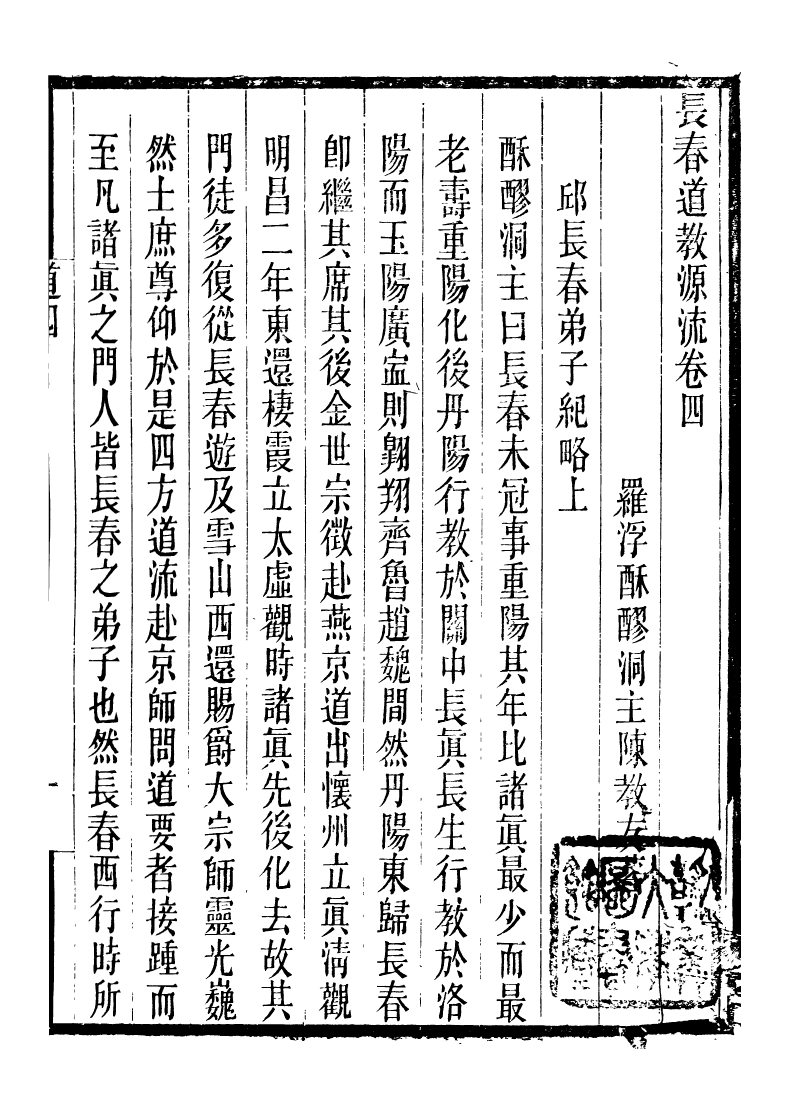 長春道教源流卷四
羅浮酥醪洞主陳教友
邱長春弟子紀略上
酥醪洞主曰長春未冠事重陽其年比諸眞最少而最
老壽重陽化後丹陽行教於關中長眞長生行教於洛
陽而玉陽廣寍則翺翔齊魯趙魏間然丹陽東歸長春
卽繼其席其後金世宗徵赴燕京道出懷州立眞淸觀
明昌二年東還棲霞立太虛觀時諸眞先後化去故其
門徒多復從長春遊及雪山西還賜爵大宗師靈光巍
然士庶尊仰於是四方道流赴京師問道要者接踵而
至凡諸眞之門人皆長春之弟子也然長春西行時所
道四